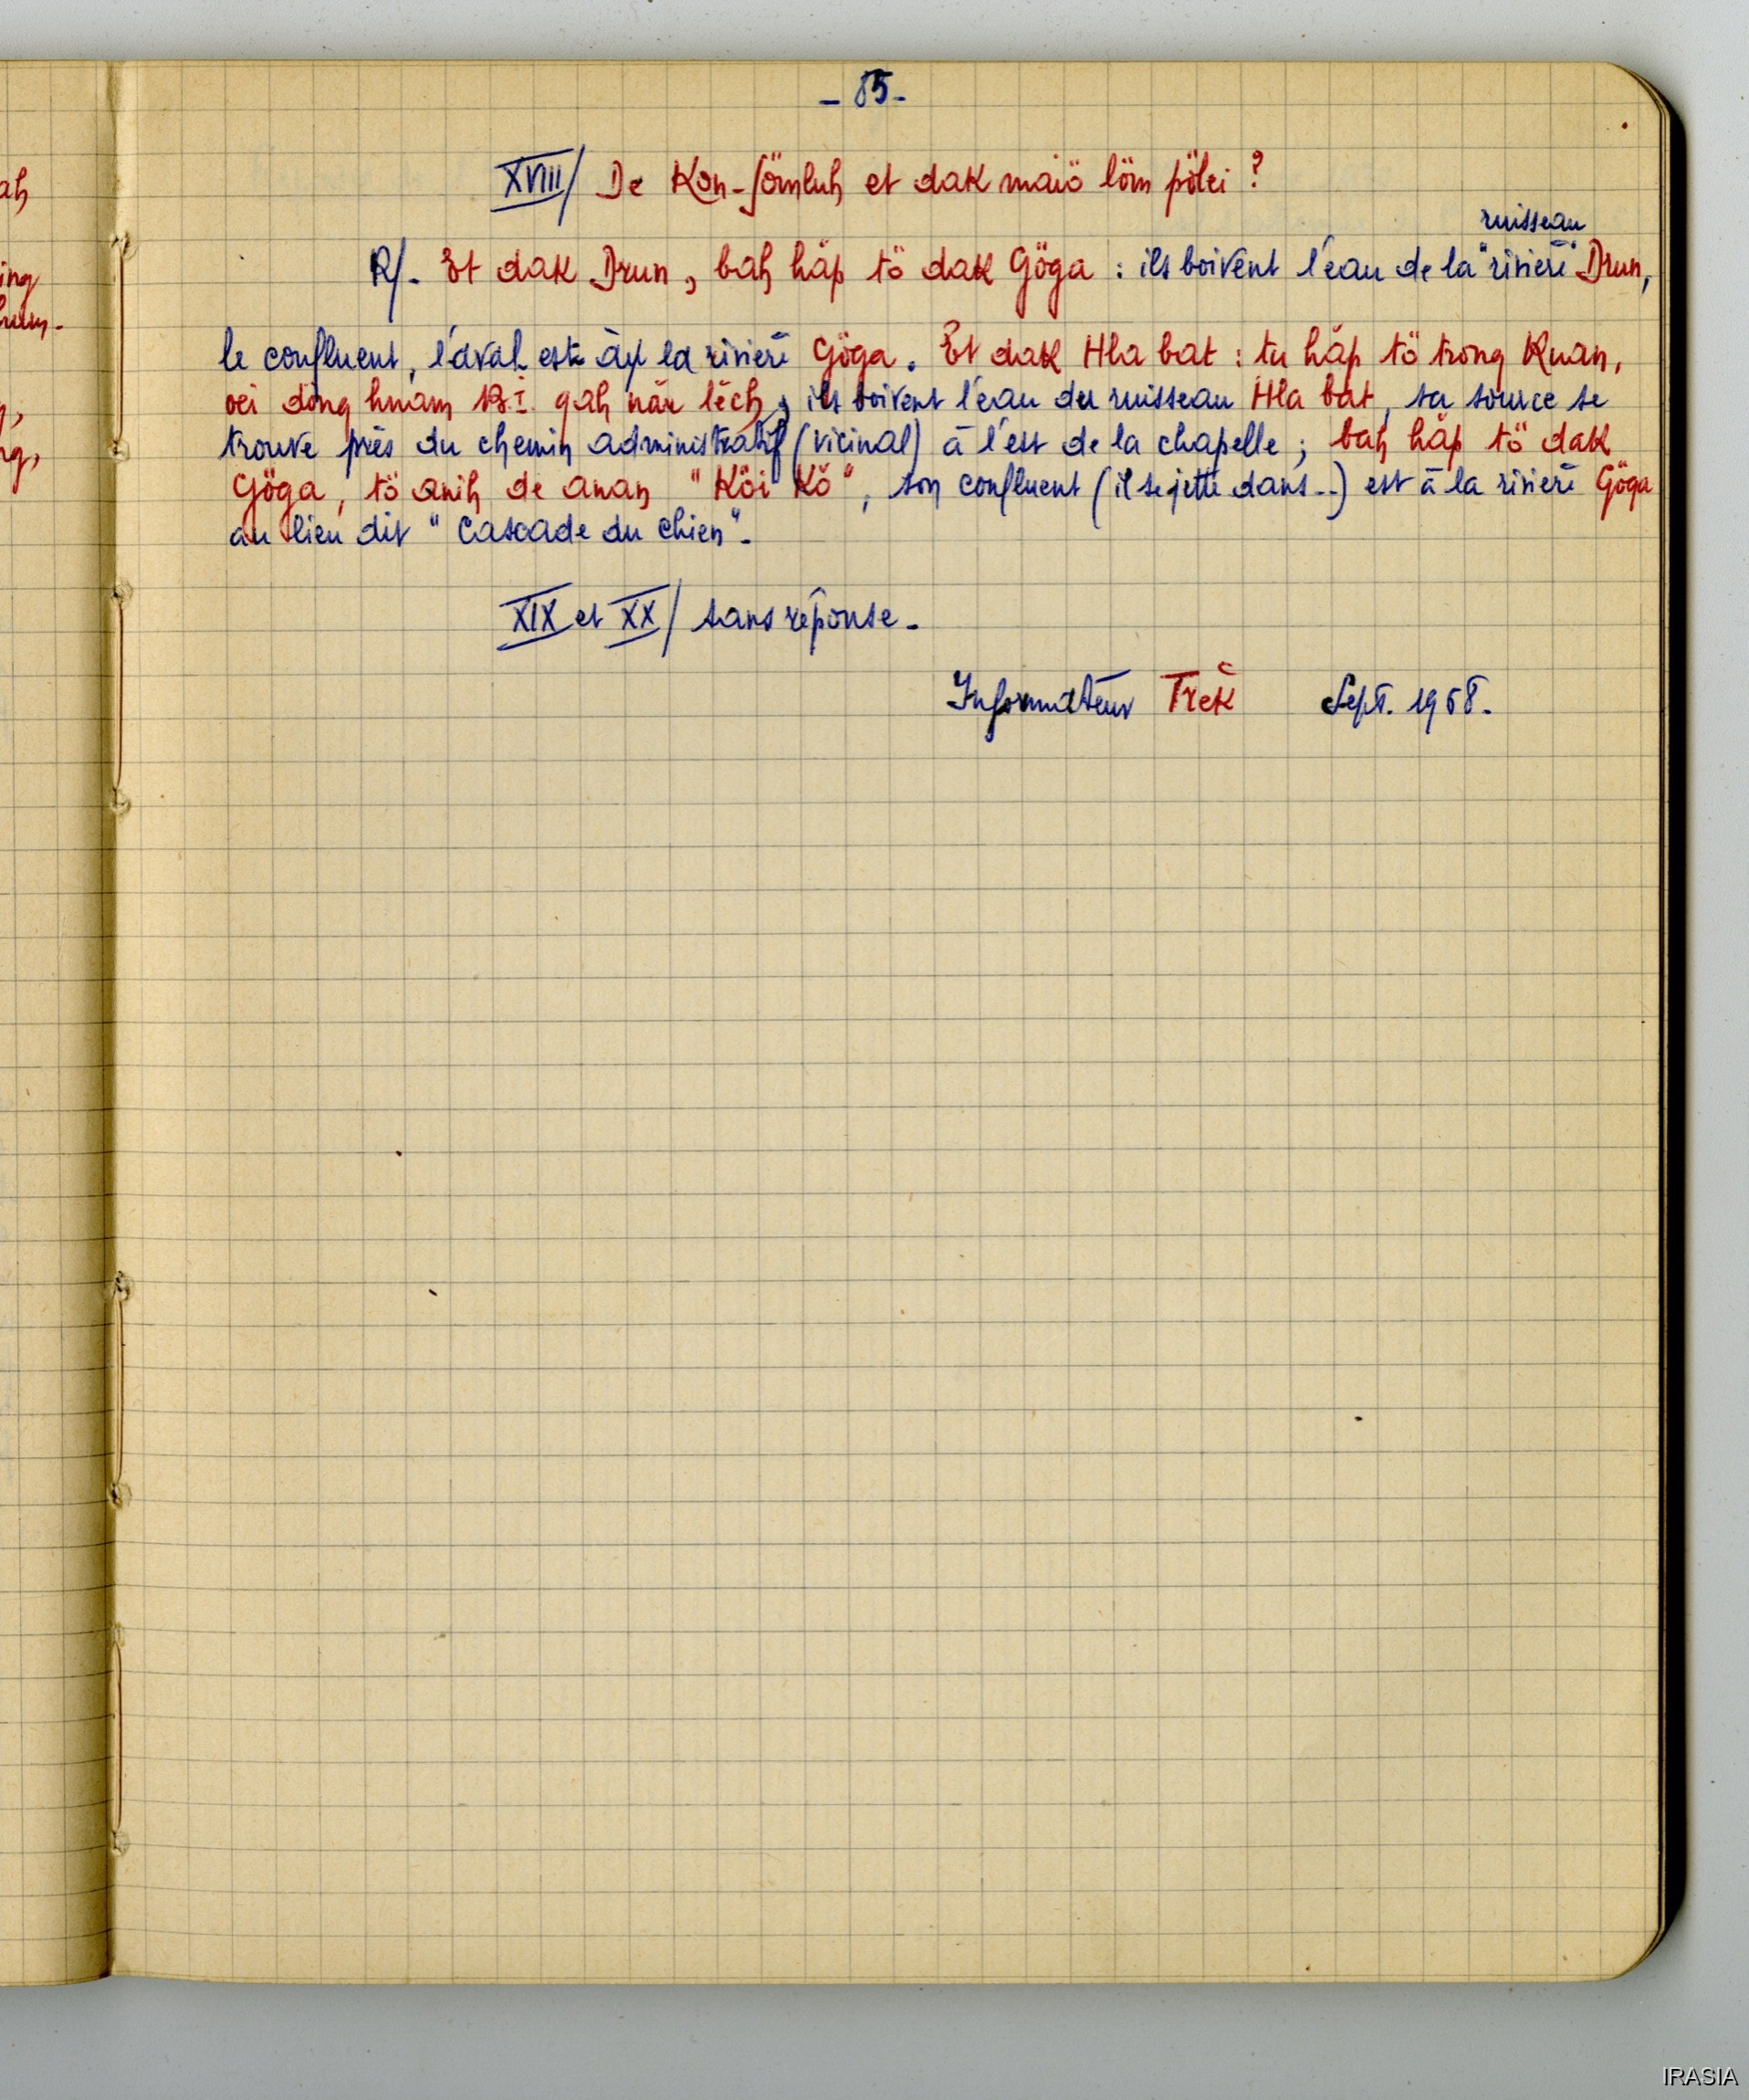 - 85 -
XVIII/ De Kon-Sömluh et dak maiö löm pölei ?
ruisseau
R/. Et dak Drun, bah hăp tö dak Göga : ils boivent l'eau de la "rivière" Drun,
le confluent, l'aval est à la rivière Göga. Et dak Hla bat : tu hăp tö trong Kuan,
oei dơng hnam B.I. gah năr lĕch, ils boivent l'eau du ruisseau Hla bat, sa source se
trouve près du chemin administratif (vicinal) à l'est de la chapelle ; bah hăp tö dak
Göga, tö anih de anan "Köi Kŏ", son confluent (il se jette dans...) est à la rivière Göga
au lieu dit "Cascade du chien".
XIX et XX/ sans réponse.
Informateur Trĕk Sept. 1968.
ah
ing
IRASIA